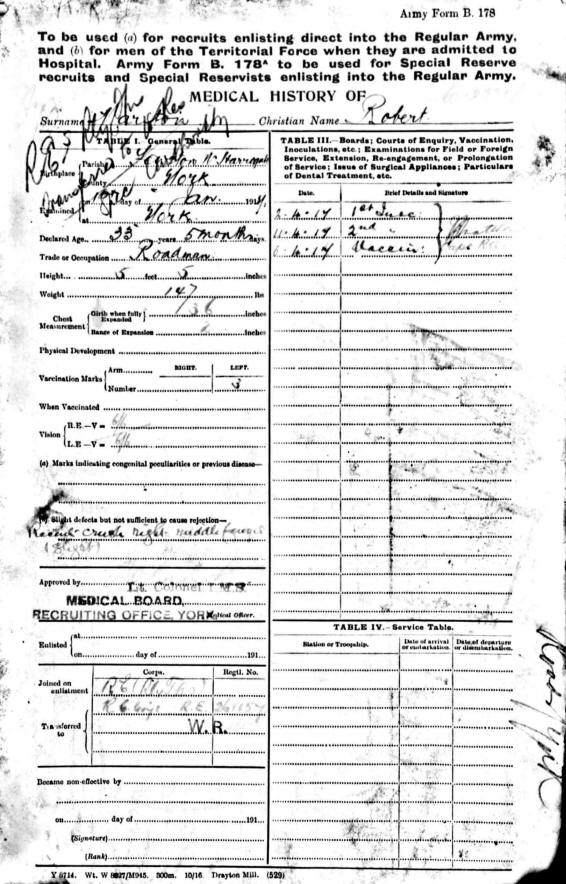 Army Form B. 178
To be used (a) for recruits enlisting direct into the Regular Army,
and (b) for men of the Territorial Force when they are admitted to
Hospital. Army Form B. 178A to be used for Special Reserve
recruits and Special Reservists enlisting into the Regular Army.
MEDICAL HISTORY OF
Surname Christian Name Robert
TABLE I. General Table.
Birthplace Parish Nr Harrogate
County York
Examined on day of Jan. 191
at York
Declared Age 33 years 5 months days.
Trade or Occupation Roadman
Height 5 feet 5 inches
Weight 147 lbs
Chest Measurement
Girth when fully Expanded 36 inches
Range of Expansion inches
Physical Development
Vaccination Marks
RIGHT. LEFT.
Arm
Number 3
When Vaccinated
Vision
R.E.—V = 6/6
L.E—V = 6/6
(a) Marks indicating congenital peculiarities or previous disease—
(b) Slight defects but not sufficient to cause rejection—
Recent crush right middle
(Slight)
Approved by Lt. Colonel
MEDICAL BOARD,
RECRUITING OFFICE, YORK Medical Officer.
Enlisted
at
on day of 191
Corps. Regtl. No.
Joined on enlistment
Transferred to R.E.
W. R.
Became non-effective by
on day of 191
(Signature)
(Rank)
TABLE III.—Boards; Courts of Enquiry, Vaccination,
Inoculations, etc.; Examinations for Field or Foreign
Service, Extension, Re-engagement, or Prolongation
of Service; Issue of Surgical Appliances; Particulars
of Dental Treatment, etc.
Date. Brief Details and Signature
2-4-17 1st Inoc.
11-4-17 2nd "
6-4-17 Vaccin.
TABLE IV.—Service Table.
Station or Troopship. Date of arrival or embarkation. Date of departure or disembarkation.
York
Y 6714. Wt. W 8827/M945. 300m. 10/16. Drayton Mill. (529)